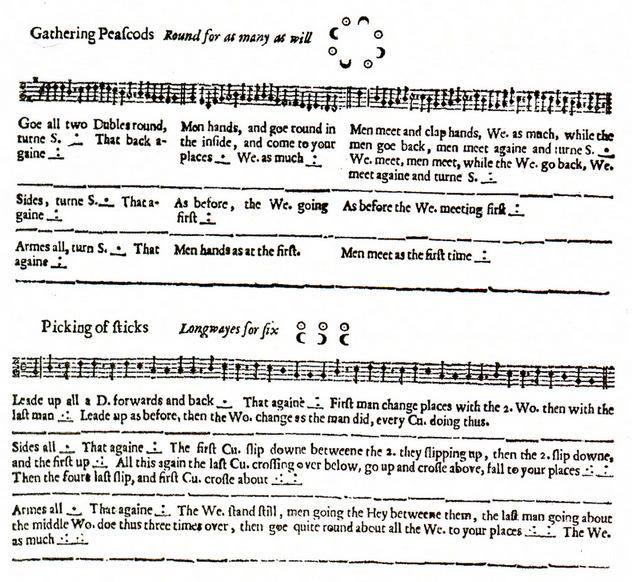 Gathering Peaſcods Round for as many as will
Goe all two Dubles round,
turne S. That back a-
gaine
Men hands, and goe round in
the inſide, and come to your
places We. as much
Men meet and clap hands, We. as much, while the
men goe back, men meet againe and turne S.
We. meet, men meet, while the We. go back, We.
meet againe and turne S.
Sides, turne S. That a-
gaine
As before, the We. going
firſt
As before the We. meeting firſt
Armes all, turn S. That
againe
Men hands as at the firſt.
Men meet as the firſt time
Picking of ſticks Longwayes for ſix
Leade up all a D. forwards and back That againe Firſt man change places with the 2. Wo. then with the
laſt man Leade up as before, then the Wo. change as the man did, every Cu. doing thus.
Sides all That againe The firſt Cu. ſlip downe betweene the 2. they ſlipping up, then the 2. ſlip downe,
and the firſt up All this again the laſt Cu. croſſing over below, go up and croſſe above, fall to your places
Then the foure laſt ſlip, and firſt Cu. croſſe about
Armes all That againe The We. ſtand ſtill, men going the Hey betweene them, the laſt man going about
the middle Wo. doe thus three times over, then goe quite round about all the We. to your places The We.
as much